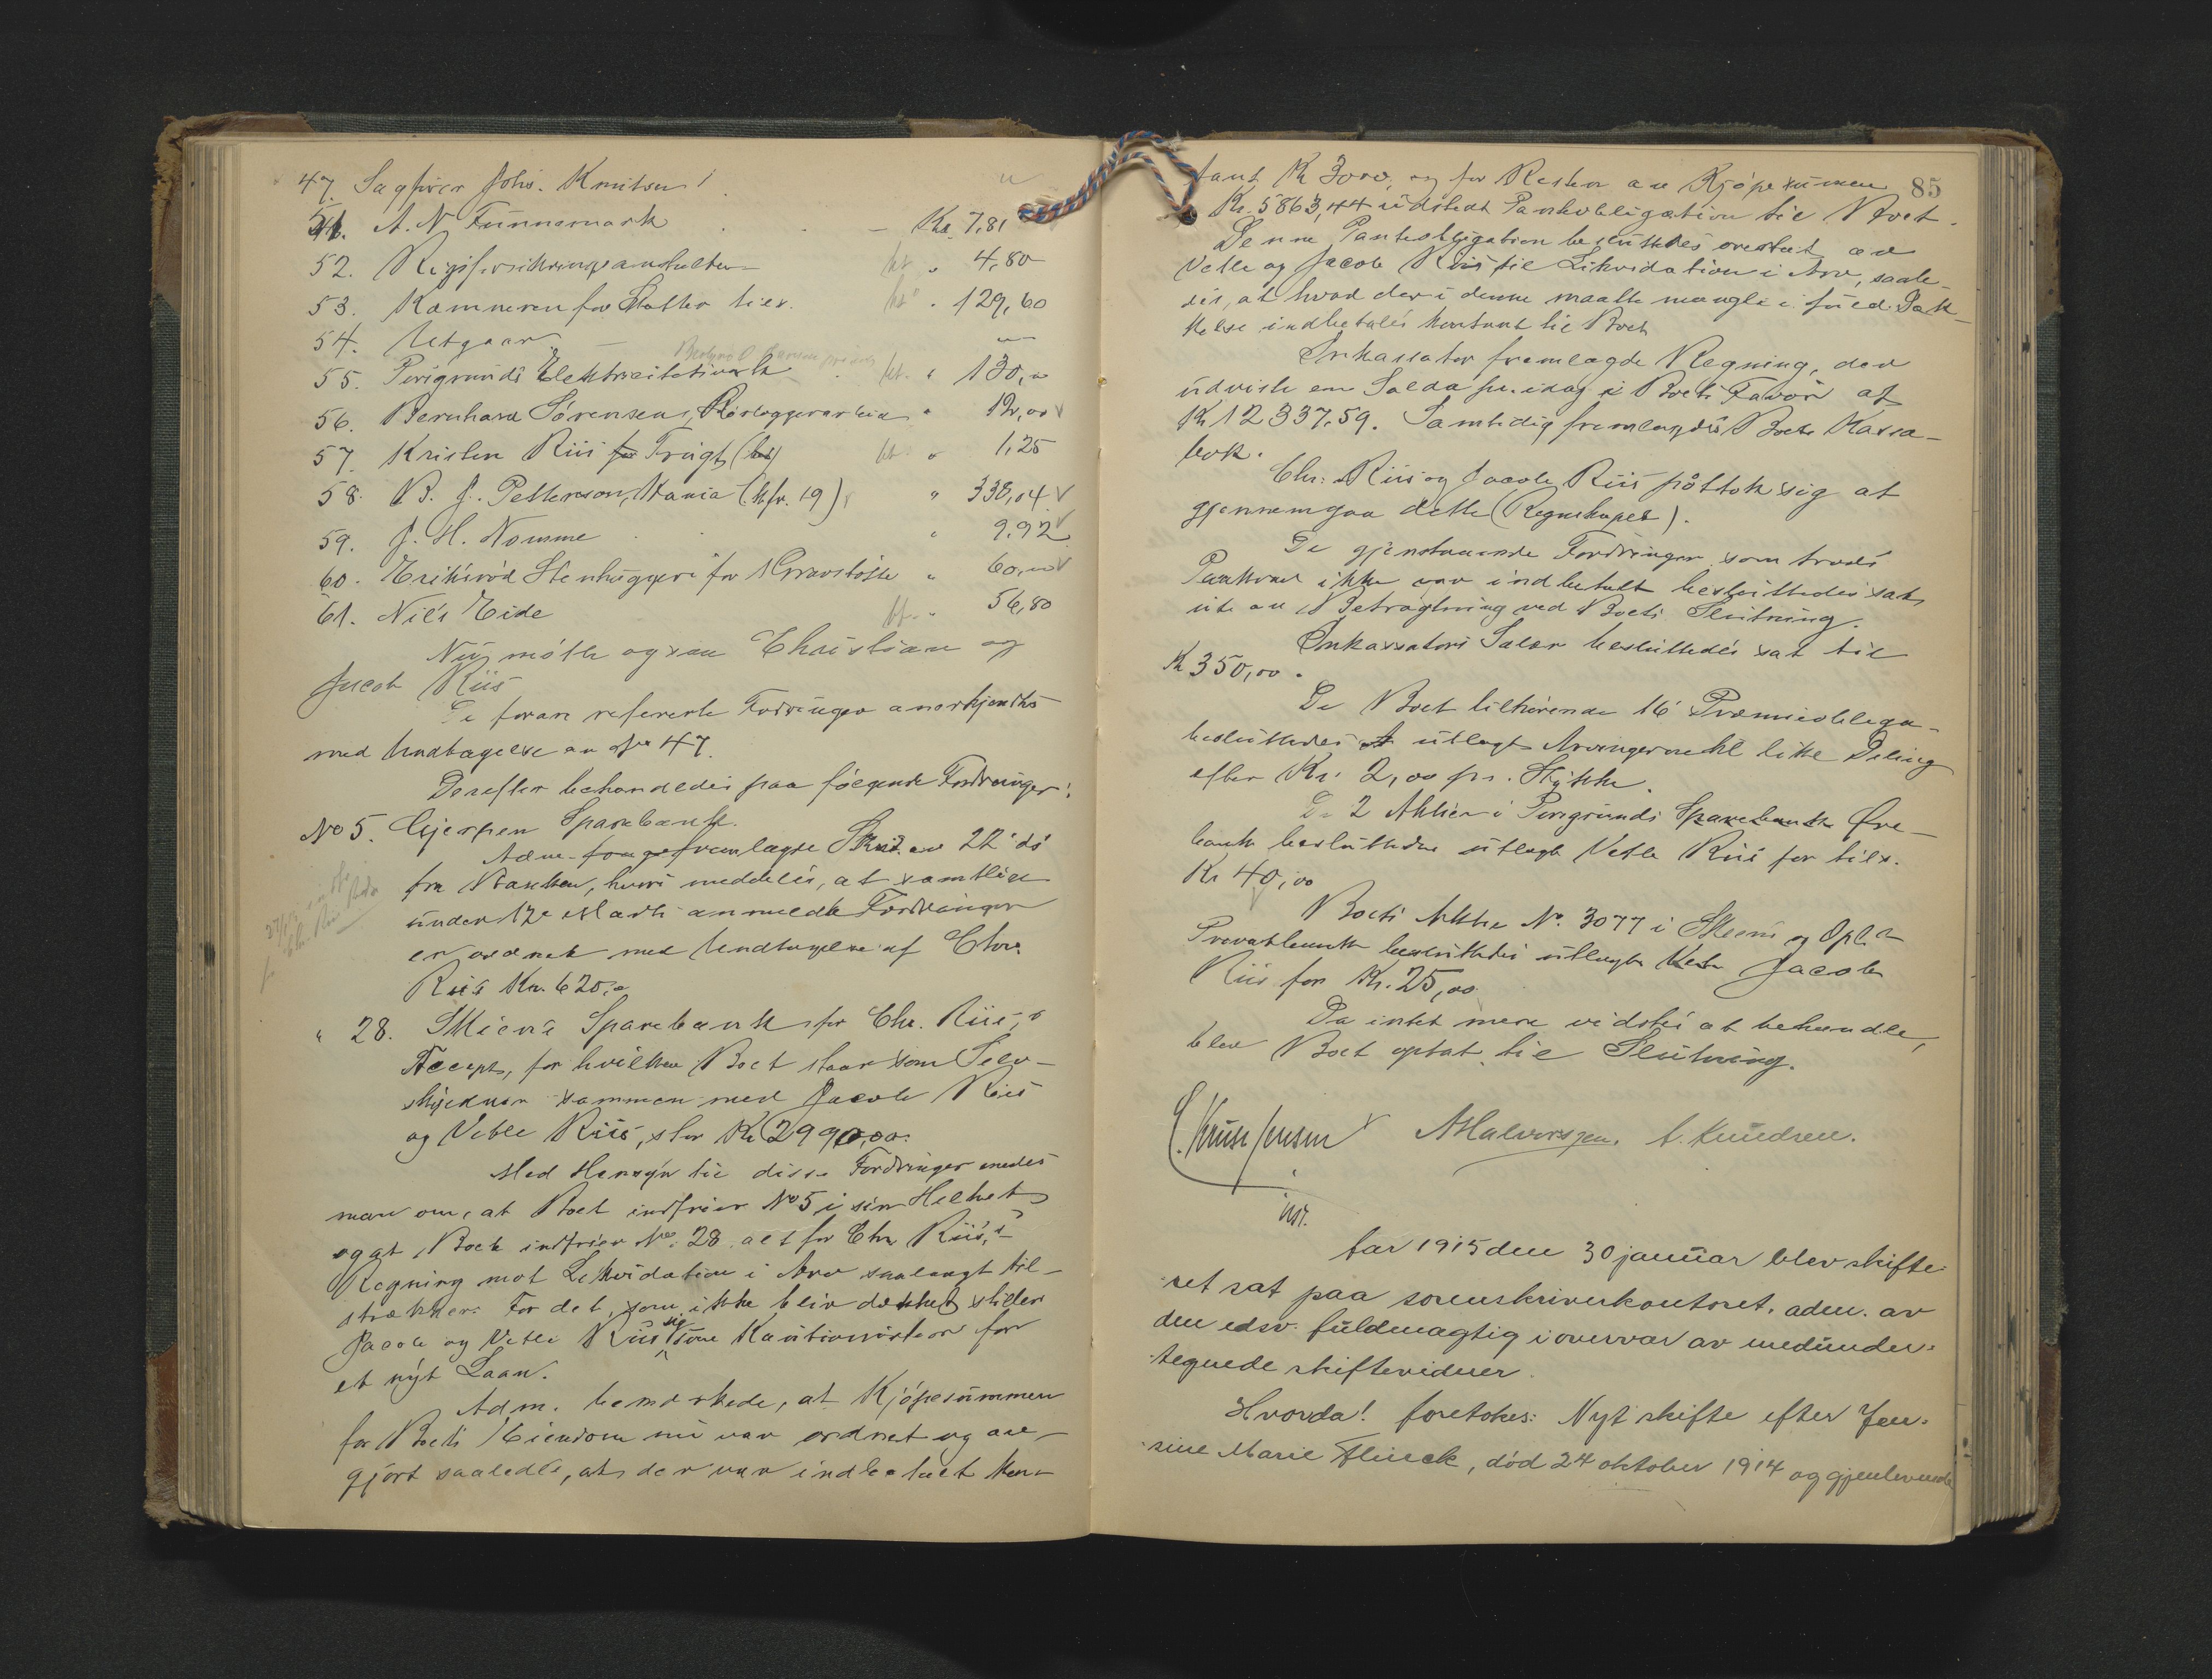 47. Sagfører Johs. Knutsen
51. A. N. Funnemark — Kr. 7,81
52. Rigsforsikringsanstalten kr. " 4,80
53. Kæmneren for Skatter tils. kr. " 129,60
54. Utgaar —
55. Porsgrunds Elektricitetsverk kr. " 130,00
56. Bernhard Sørensen, Rørlæggerarbeid " 12,00
57. Kristen Riis for Frugt (bet) kr. " 1,25
58. B. J. Pettersson, Kania (kfr. 19) " 338,04
59. J. H. Nomme " 9,92
60. Eriksrød Stenhuggeri for Gravstøtte " 60,00
61. Nils Eide kr. " 56,80
Nu møtte ogsaa Christian og
Jacob Riis
De foran refererte Fordringer anerkjendtes
med Undtagelse av No 47.
Derefter behandledes paa følgende Fordringer:
No 5. Gjerpen Sparebank.
Adm. fremlagde Skriv. av 22 ds
fra Banken, hvori meddeles, at samtlige
under 12te Marts anmeldte Fordringer
er ordnet med Undtagelse af Chr.
Riis Kr. 620,00
" 28. Skiens Sparebank for Chr. Riis's
Accept, for hvilken Boet staar som Selv-
skyldner sammen med Jacob Riis
og Vetle Riis, stor Kr. 2990,00.
Med Hensyn til disse Fordringer enedes
man om, at Boet indfrier No 5 i sin Helhet
og at Boet indfrier No. 28 alt for Chr. Riis's
Regning mot Likvidation i Arv saalangt til-
strækker. For det, som ikke blir dækket stiller
Jacob og Vetle Riis sig som Kautionister for
et nyt Laan.
Adm. bemærkede, at Kjøpesummen
for Boets Eiendom nu var ordnet og av-
gjort saaledes, at der var indbetalt kon-
85
tant Kr 3000, og for Resten av Kjøpesummen
Kr. 5863,44 udstedt Pantobligation til Boet.
Denne Pantobligation besluttedes overtat av
Vetle og Jacob Riis til Likvidation i Arv, saale-
des, at hvad der i denne maatte mangle i fuld Dæk-
kelse indbetales kontant til Boet
Inkassator fremlagde Regning, der
udviste en Saldo pr. idag i Boets Favør af
Kr 12337,59. Samtidig fremlagdes Boets Kassa-
bok.
Chr. Riis og Jacob Riis påtok sig at
gjennemgaa dette (Regnskapet).
De gjenstaaende Fordringer som trods
Paakrav ikke var indbetalt besluttedes sat
ute av Betragtning ved Boets Slutning.
Inkassators Salær besluttedes sat til
Kr 350,00.
De Boet tilhørende 16 Præmieobliga-
besluttedes utlagt Arvingerne til like Deling
efter Kr. 2,00 pr. Stykke.
De 2 Aktier i Porsgrunds Sparebank Øre-
bank besluttedes utlagt Vetle Riis for tils.
Kr 40,00
Boets Aktie No. 3077 i Skiens og Opl.s
Privatbank besluttedes utlagt Vetle Jacob
Riis for Kr. 25,00
Da intet mere vidstes at behandle,
blev Boet optat til Slutning.
C. Kruse Jensen A Halvorsen. A. Knudsen.
cst.
Aar 1915 den 30 januar blev skifte-
ret sat paa sorenskriverkontoret, adm. av
den edsv. fuldmægtig i overvær av medunder-
tegnede skiftevidner.
Hvorda! foretokes: Nyt skifte efter Jen-
sine Marie Flueck, død 24 oktober 1914 og gjenlevende